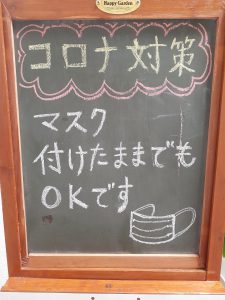 Happy Garden
コロナ対策
マスク
付けたままでも
OKです